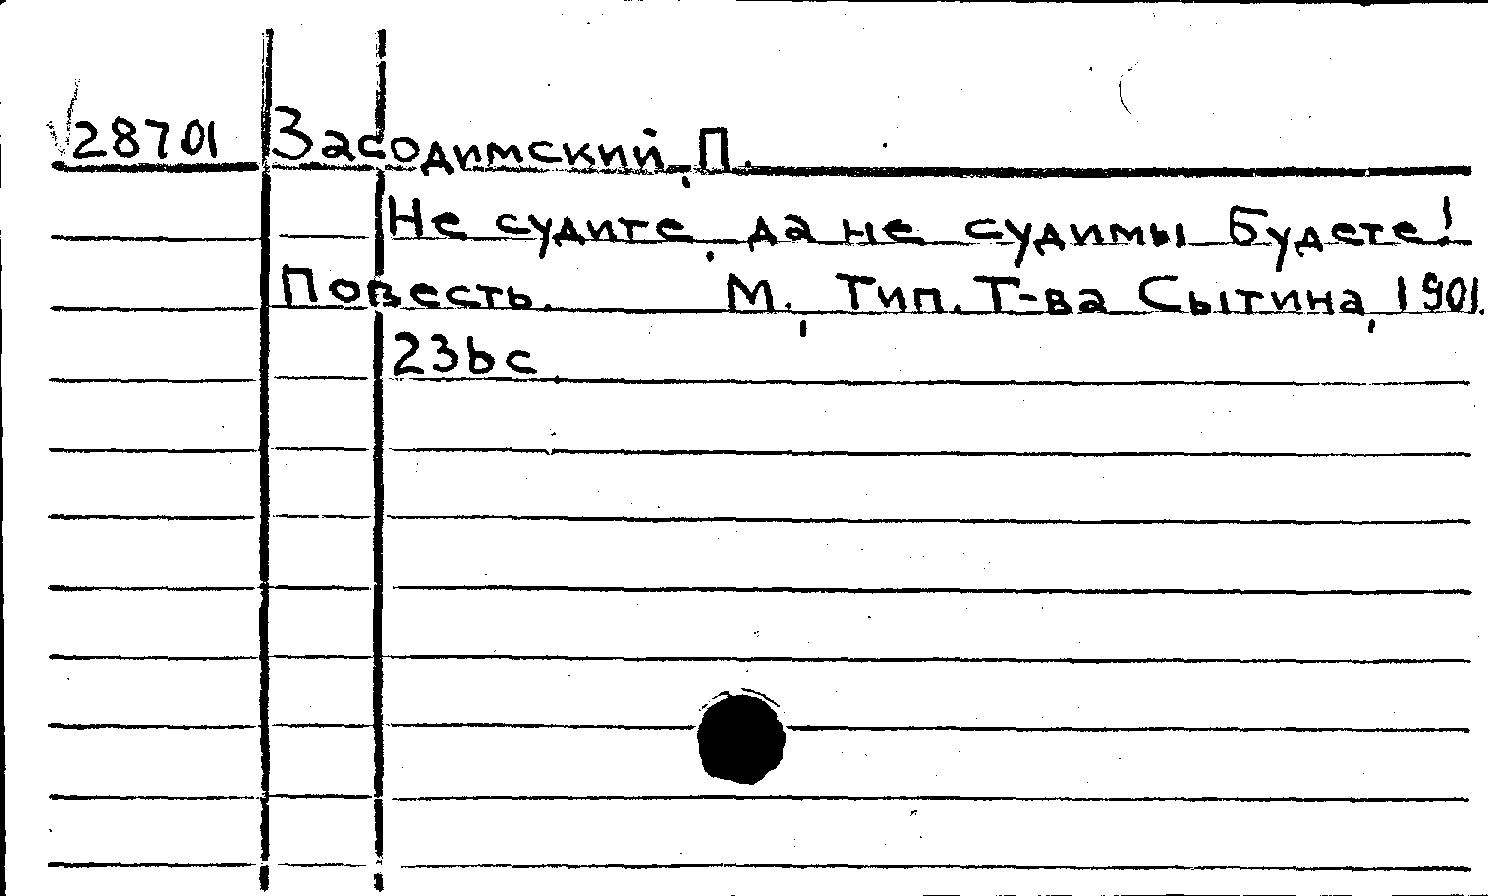 28701 Засодимский, П.
Не судите, да не судимы будете!
Повесть. М., Тип. Т-ва Сытина, 1901.
23bc